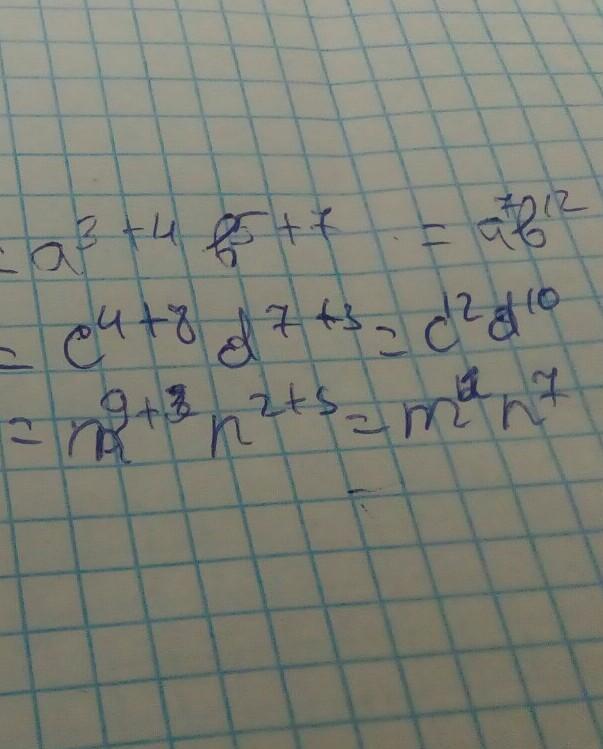 = a^{3+4} b^{5+7} = a^7 b^{12}
= c^{4+8} d^{7+3} = c^{12} d^{10}
= m^{9+3} n^{2+5} = m^{12} n^7